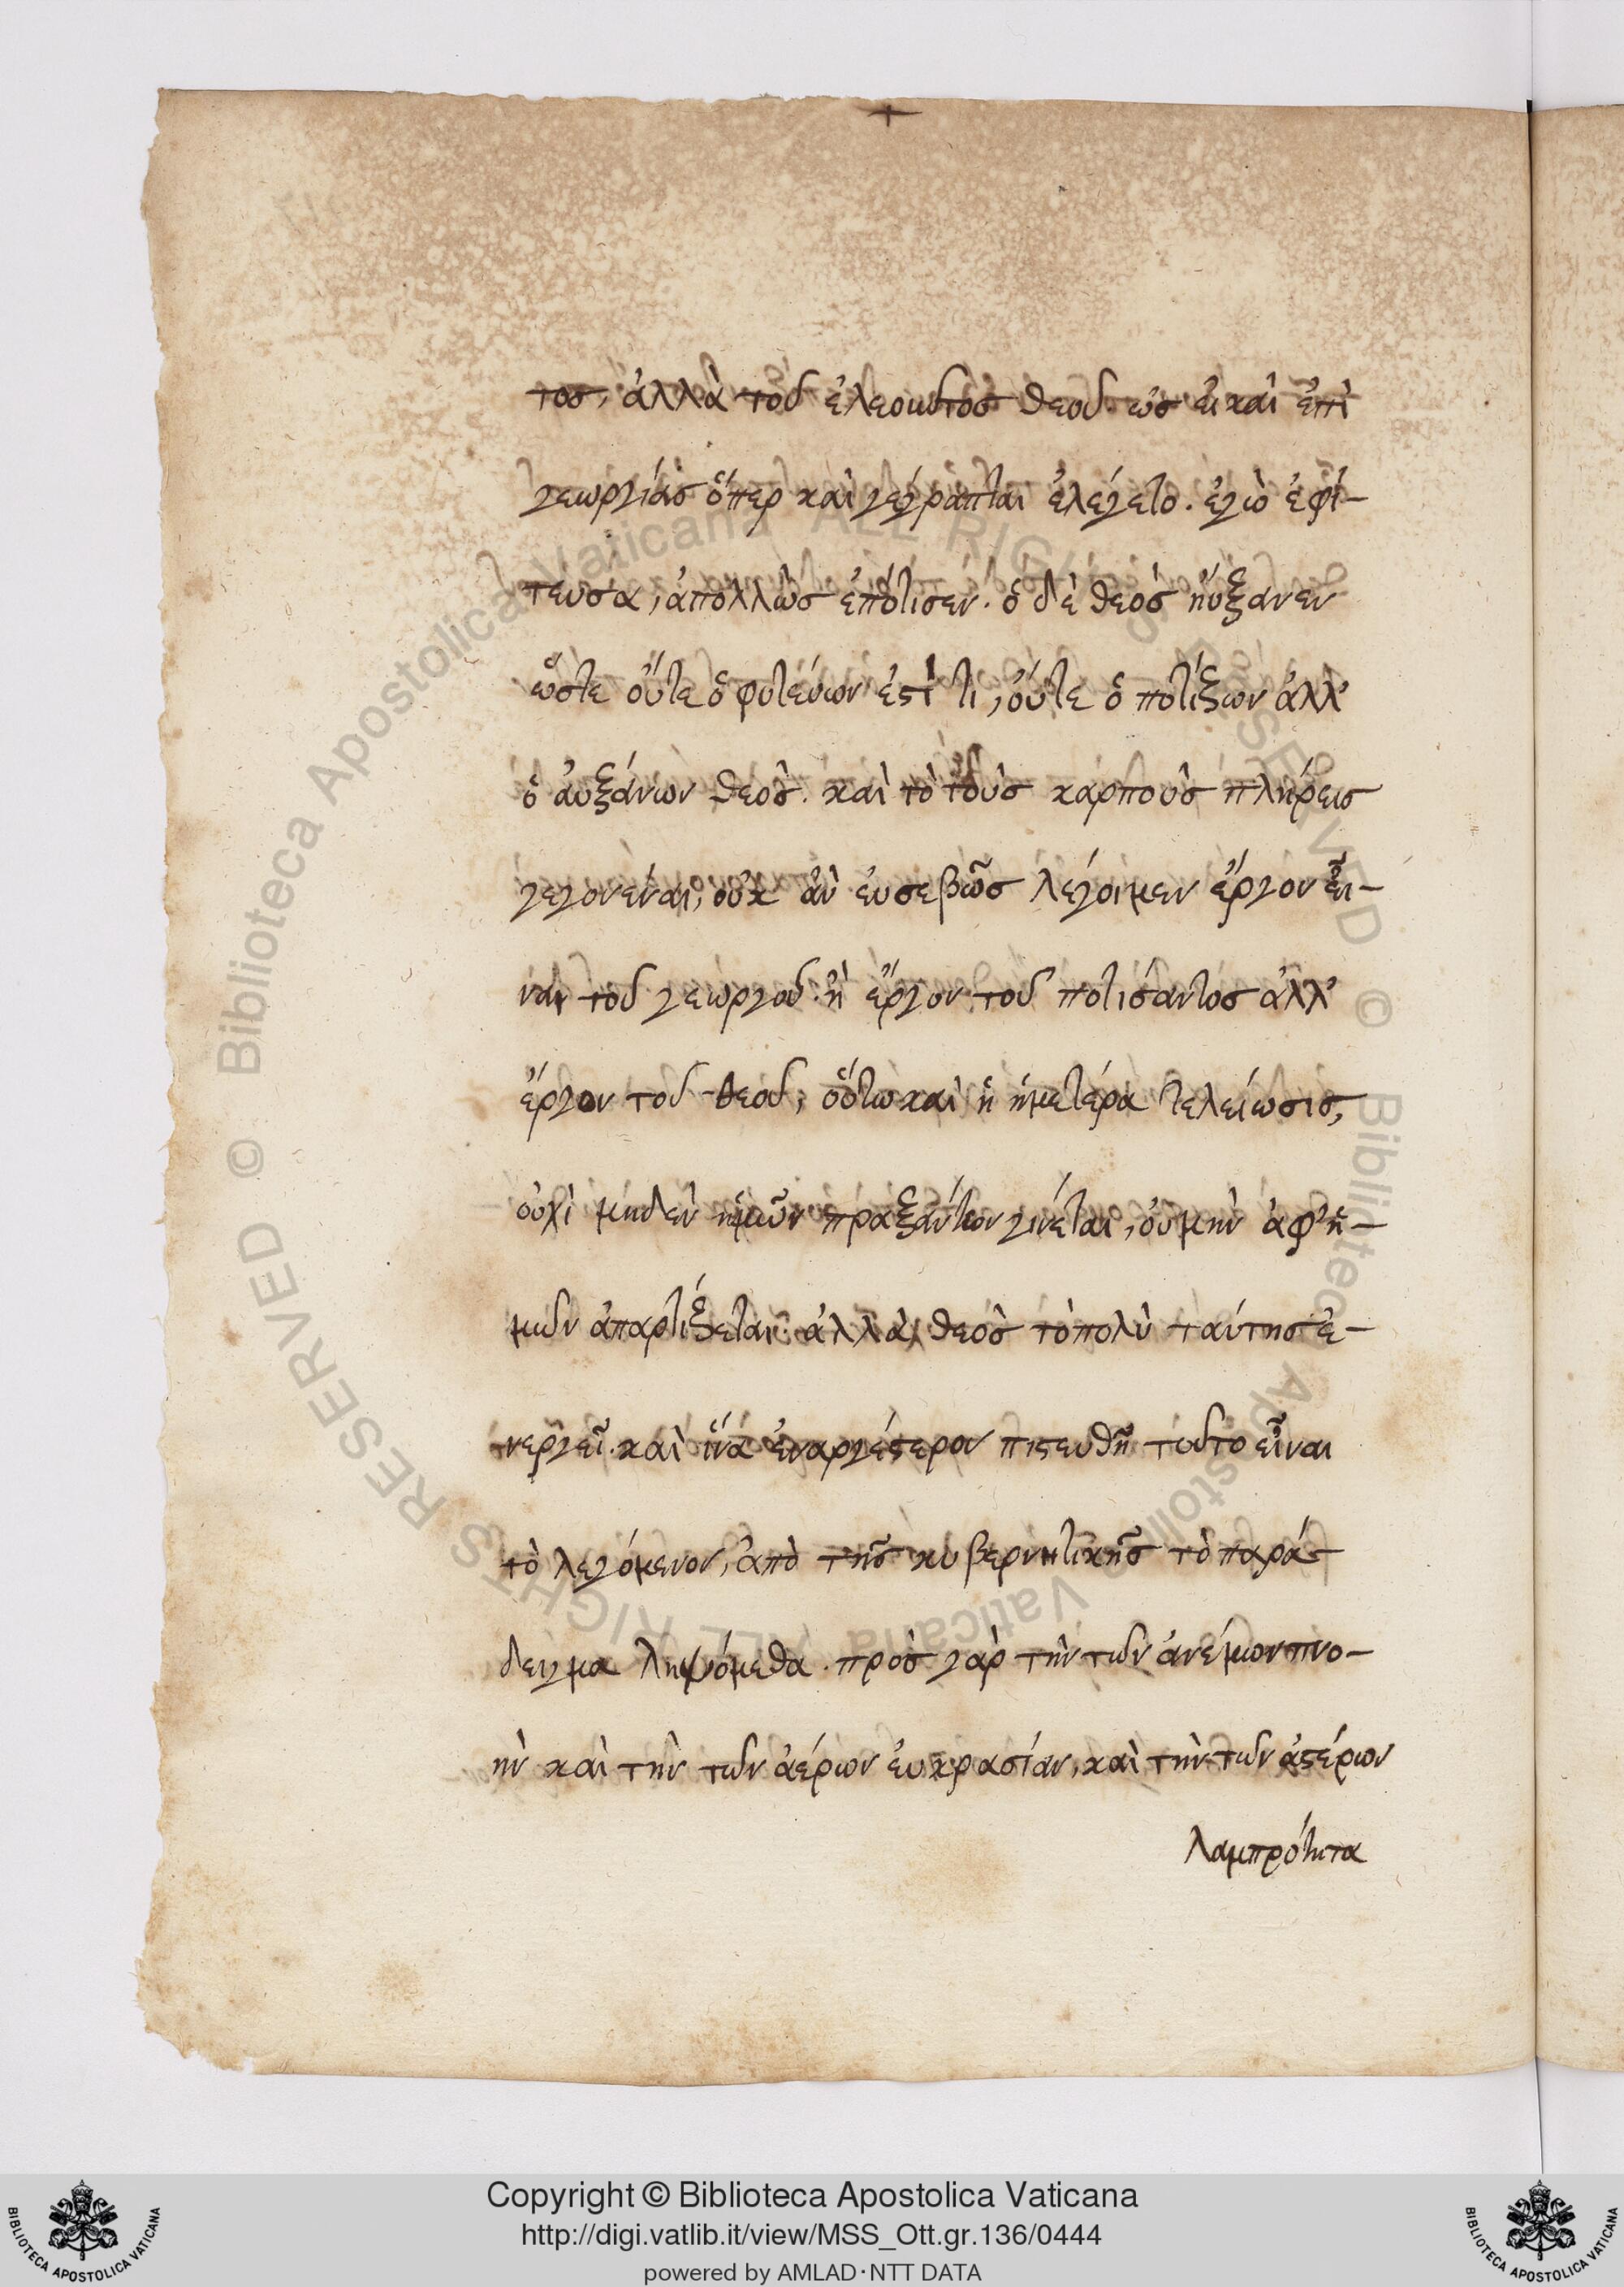 τος, ἀλλὰ τοῦ ἐλεοῦντος θεοῦ· ὡς εἰ καὶ ἐπὶ
γεωργίας ὅπερ καὶ γέγραπται ἐλέγετο. ἐγὼ ἐφύ-
τευσα, ἀπολλὼς ἐπότισεν. ὁ δὲ θεὸς ηὔξανεν
ὥστε οὔτε ὁ φυτεύων ἐστί τι, οὔτε ὁ ποτίζων ἀλλ'
ὁ αὐξάνων θεὸς. καὶ τὸ τοὺς καρποὺς πλήρεις
γεγονέναι, οὐκ ἂν εὐσεβῶς λέγοιμεν ἔργον εἶ-
ναι τοῦ γεωργοῦ· ἢ ἔργον τοῦ ποτίσαντος ἀλλ'
ἔργον τοῦ θεοῦ, οὕτω καὶ ἡ ἡμετέρα τελείωσις,
οὐχὶ μηδὲν ἡμῶν πραξάντων γίνεται, οὐ μὴν ἀφ' ἡ-
μῶν ἀπαρτίζεται· ἀλλὰ θεὸς τὸ πολὺ ταύτης ἐ-
νεργεῖ. καὶ ἵνα ἐναργέστερον πιστευθῇ τοῦτο εἶναι
τὸ λεγόμενον, ἀπὸ τῆς κυβερνητικῆς τὸ παρά-
δειγμα ληψόμεθα. πρὸς γὰρ τὴν τῶν ἀνέμων πνο-
ὴν καὶ τὴν τῶν ἀέρων εὐκρασίαν, καὶ τὴν τῶν ἀστέρων
λαμπρότητα
Copyright © Biblioteca Apostolica Vaticana
http://digi.vatlib.it/view/MSS_Ott.gr.136/0444
powered by AMLAD·NTT DATA
BIBLIOTECA APOSTOLICA VATICANA
BIBLIOTECA APOSTOLICA VATICANA
© Biblioteca Apostolica Vaticana ALL RIGHTS RESERVED © Biblioteca Apostolica Vaticana ALL RIGHTS RESERVED